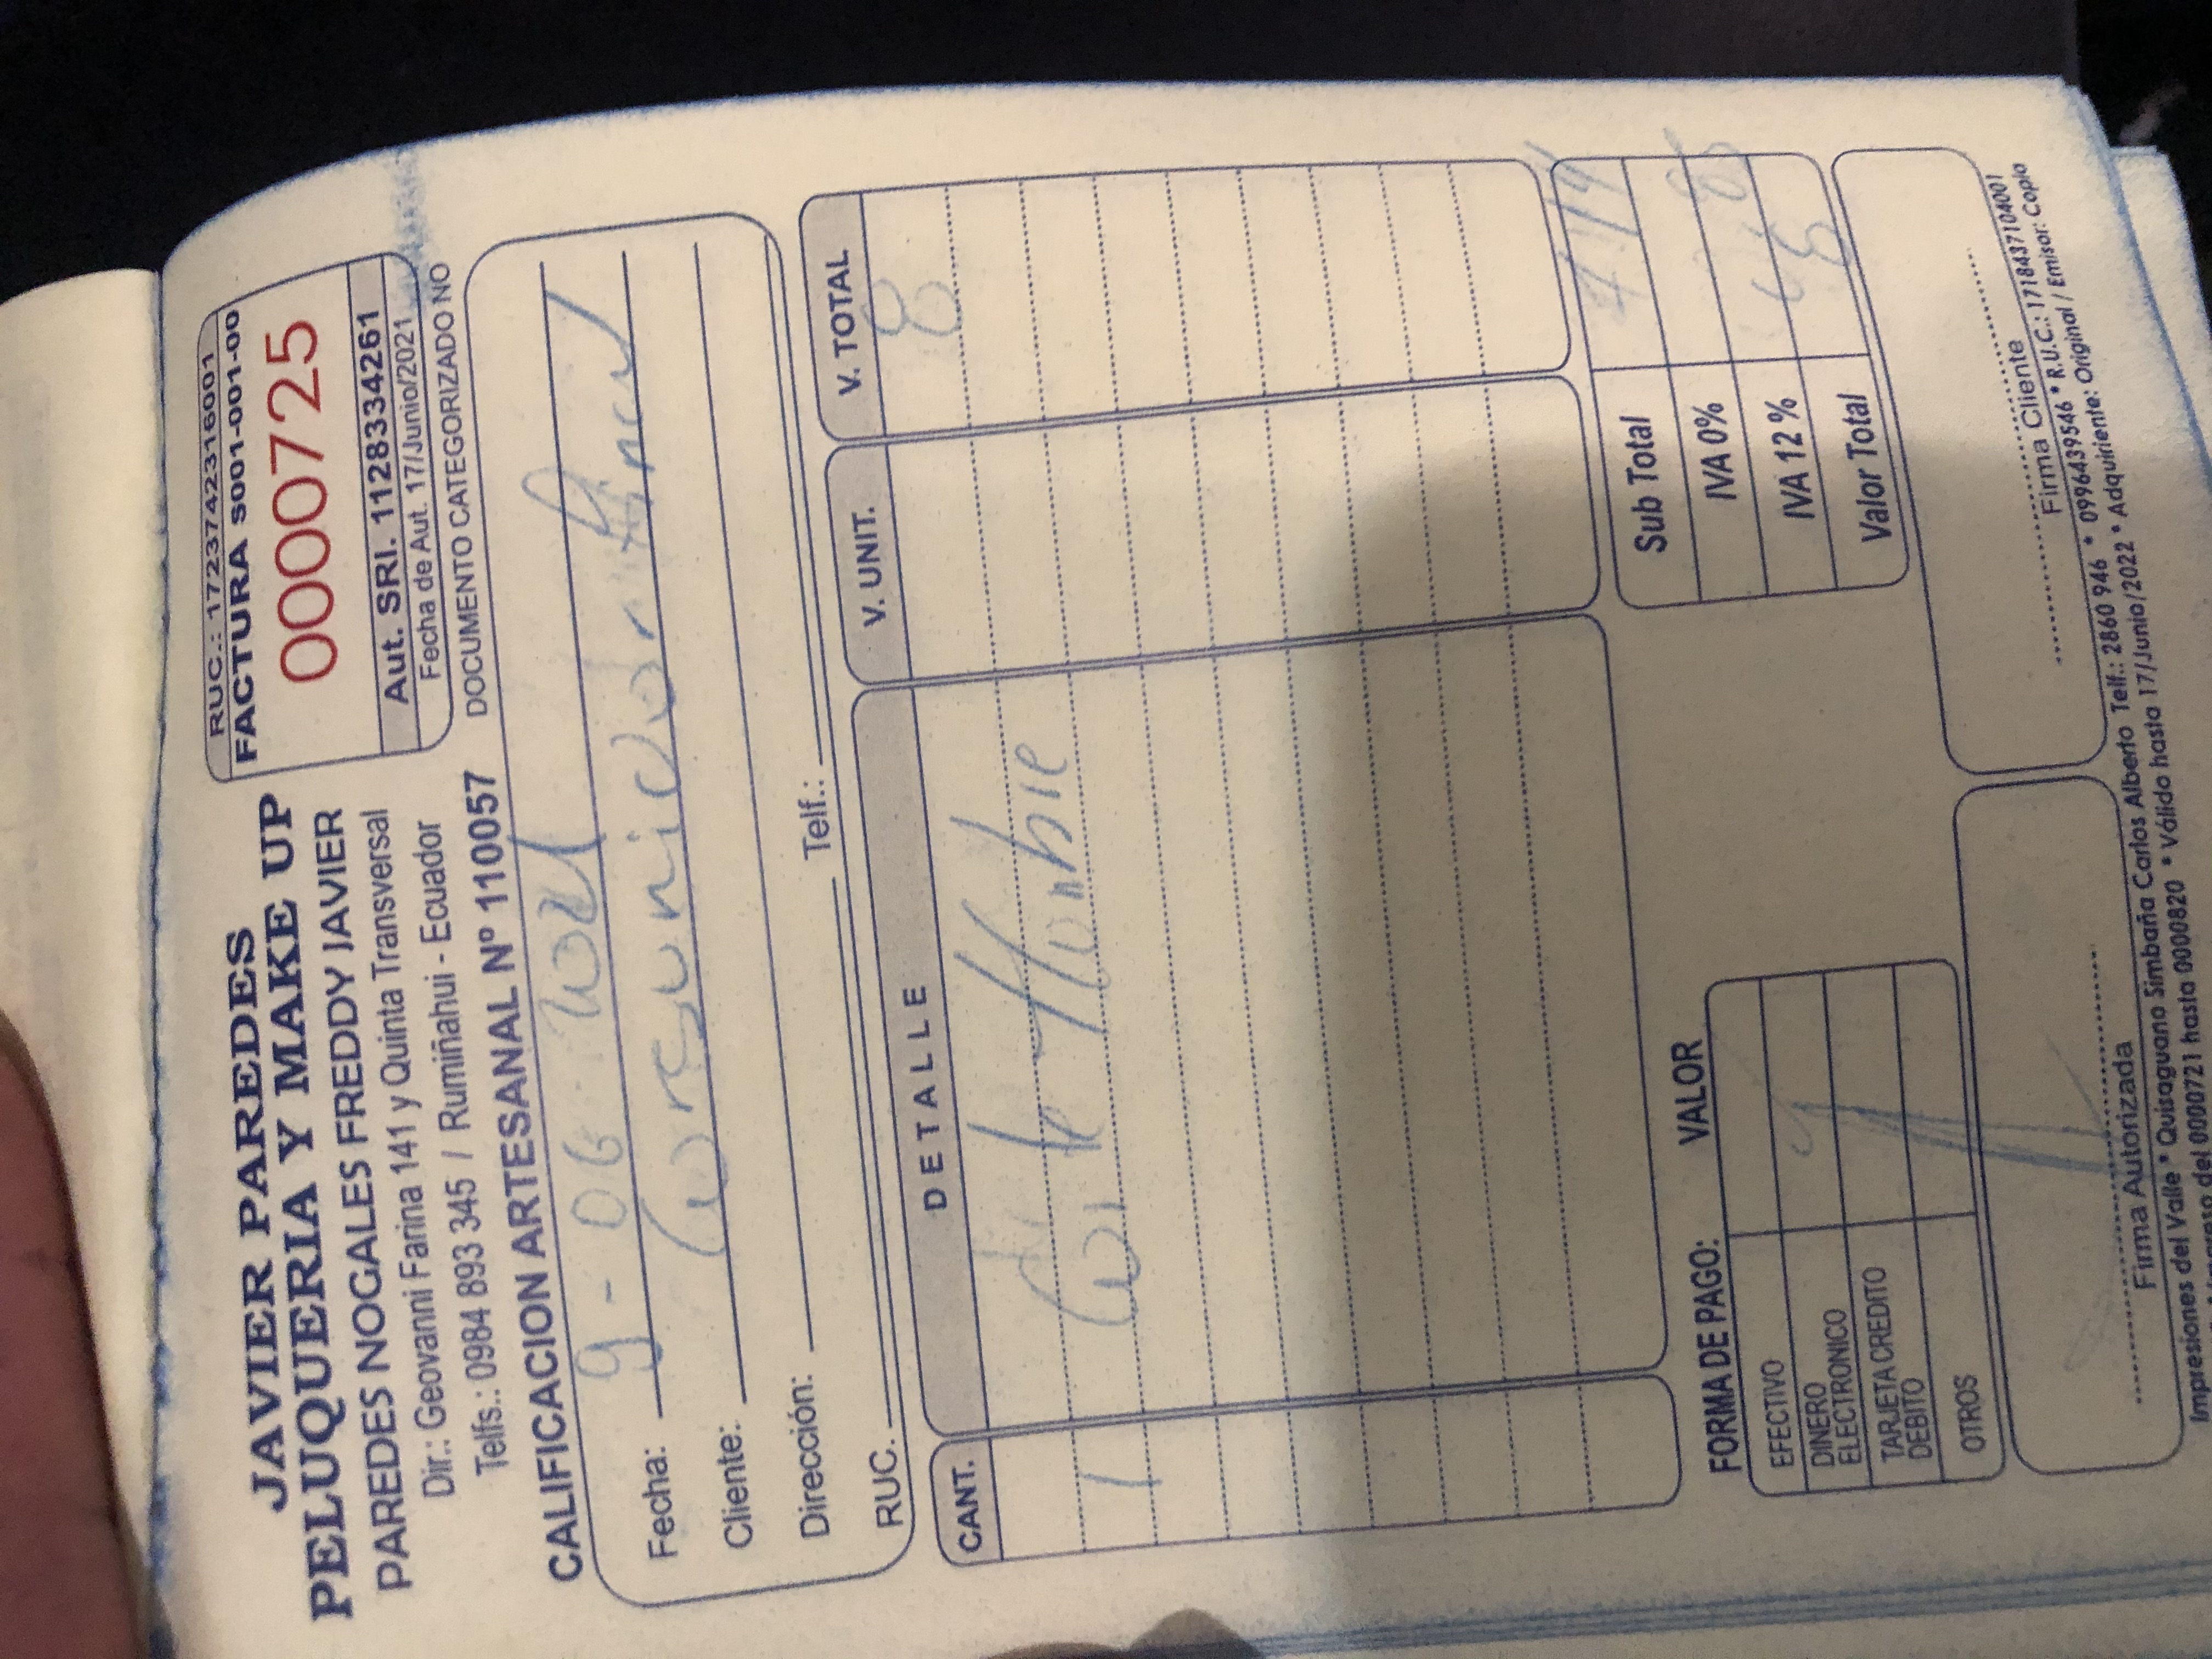 JAVIER PAREDES
PELUQUERIA Y MAKE UP
PAREDES NOGALES FREDDY JAVIER
Dir.: Geovanni Farina 141 y Quinta Transversal
Telfs.: 0984 893 345 / Rumiñahui - Ecuador
CALIFICACION ARTESANAL Nº 110057
RUC.: 1723742316001
FACTURA S001-001-00
0000725
Aut. SRI. 1128334261
Fecha de Aut. 17/Junio/2021
DOCUMENTO CATEGORIZADO NO
Fecha: 9 - 06 2021
Cliente: Consumidor Final
Dirección:
RUC. Telf.:
CANT. DETALLE V. UNIT. V. TOTAL
8
1 Corte Hombre
Sub Total 7 14
IVA 0%
IVA 12 % 85
Valor Total 8
FORMA DE PAGO: VALOR
EFECTIVO
DINERO
ELECTRONICO
TARJETA CREDITO
DEBITO
OTROS
Firma Autorizada
Firma Cliente
Impresiones del Valle * Quisaguano Simbaña Carlos Alberto Telf.: 2860 946 * 0996439546 * R.U.C.: 1718437104001
Impreso del 0000721 hasta 0000820 * Válido hasta 17/Junio/2022 * Adquiriente: Original / Emisor: Copia